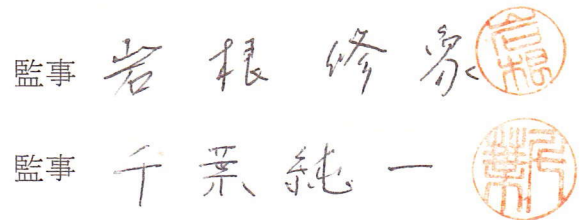 監事 岩根修象 岩根
監事 千葉純一 千葉